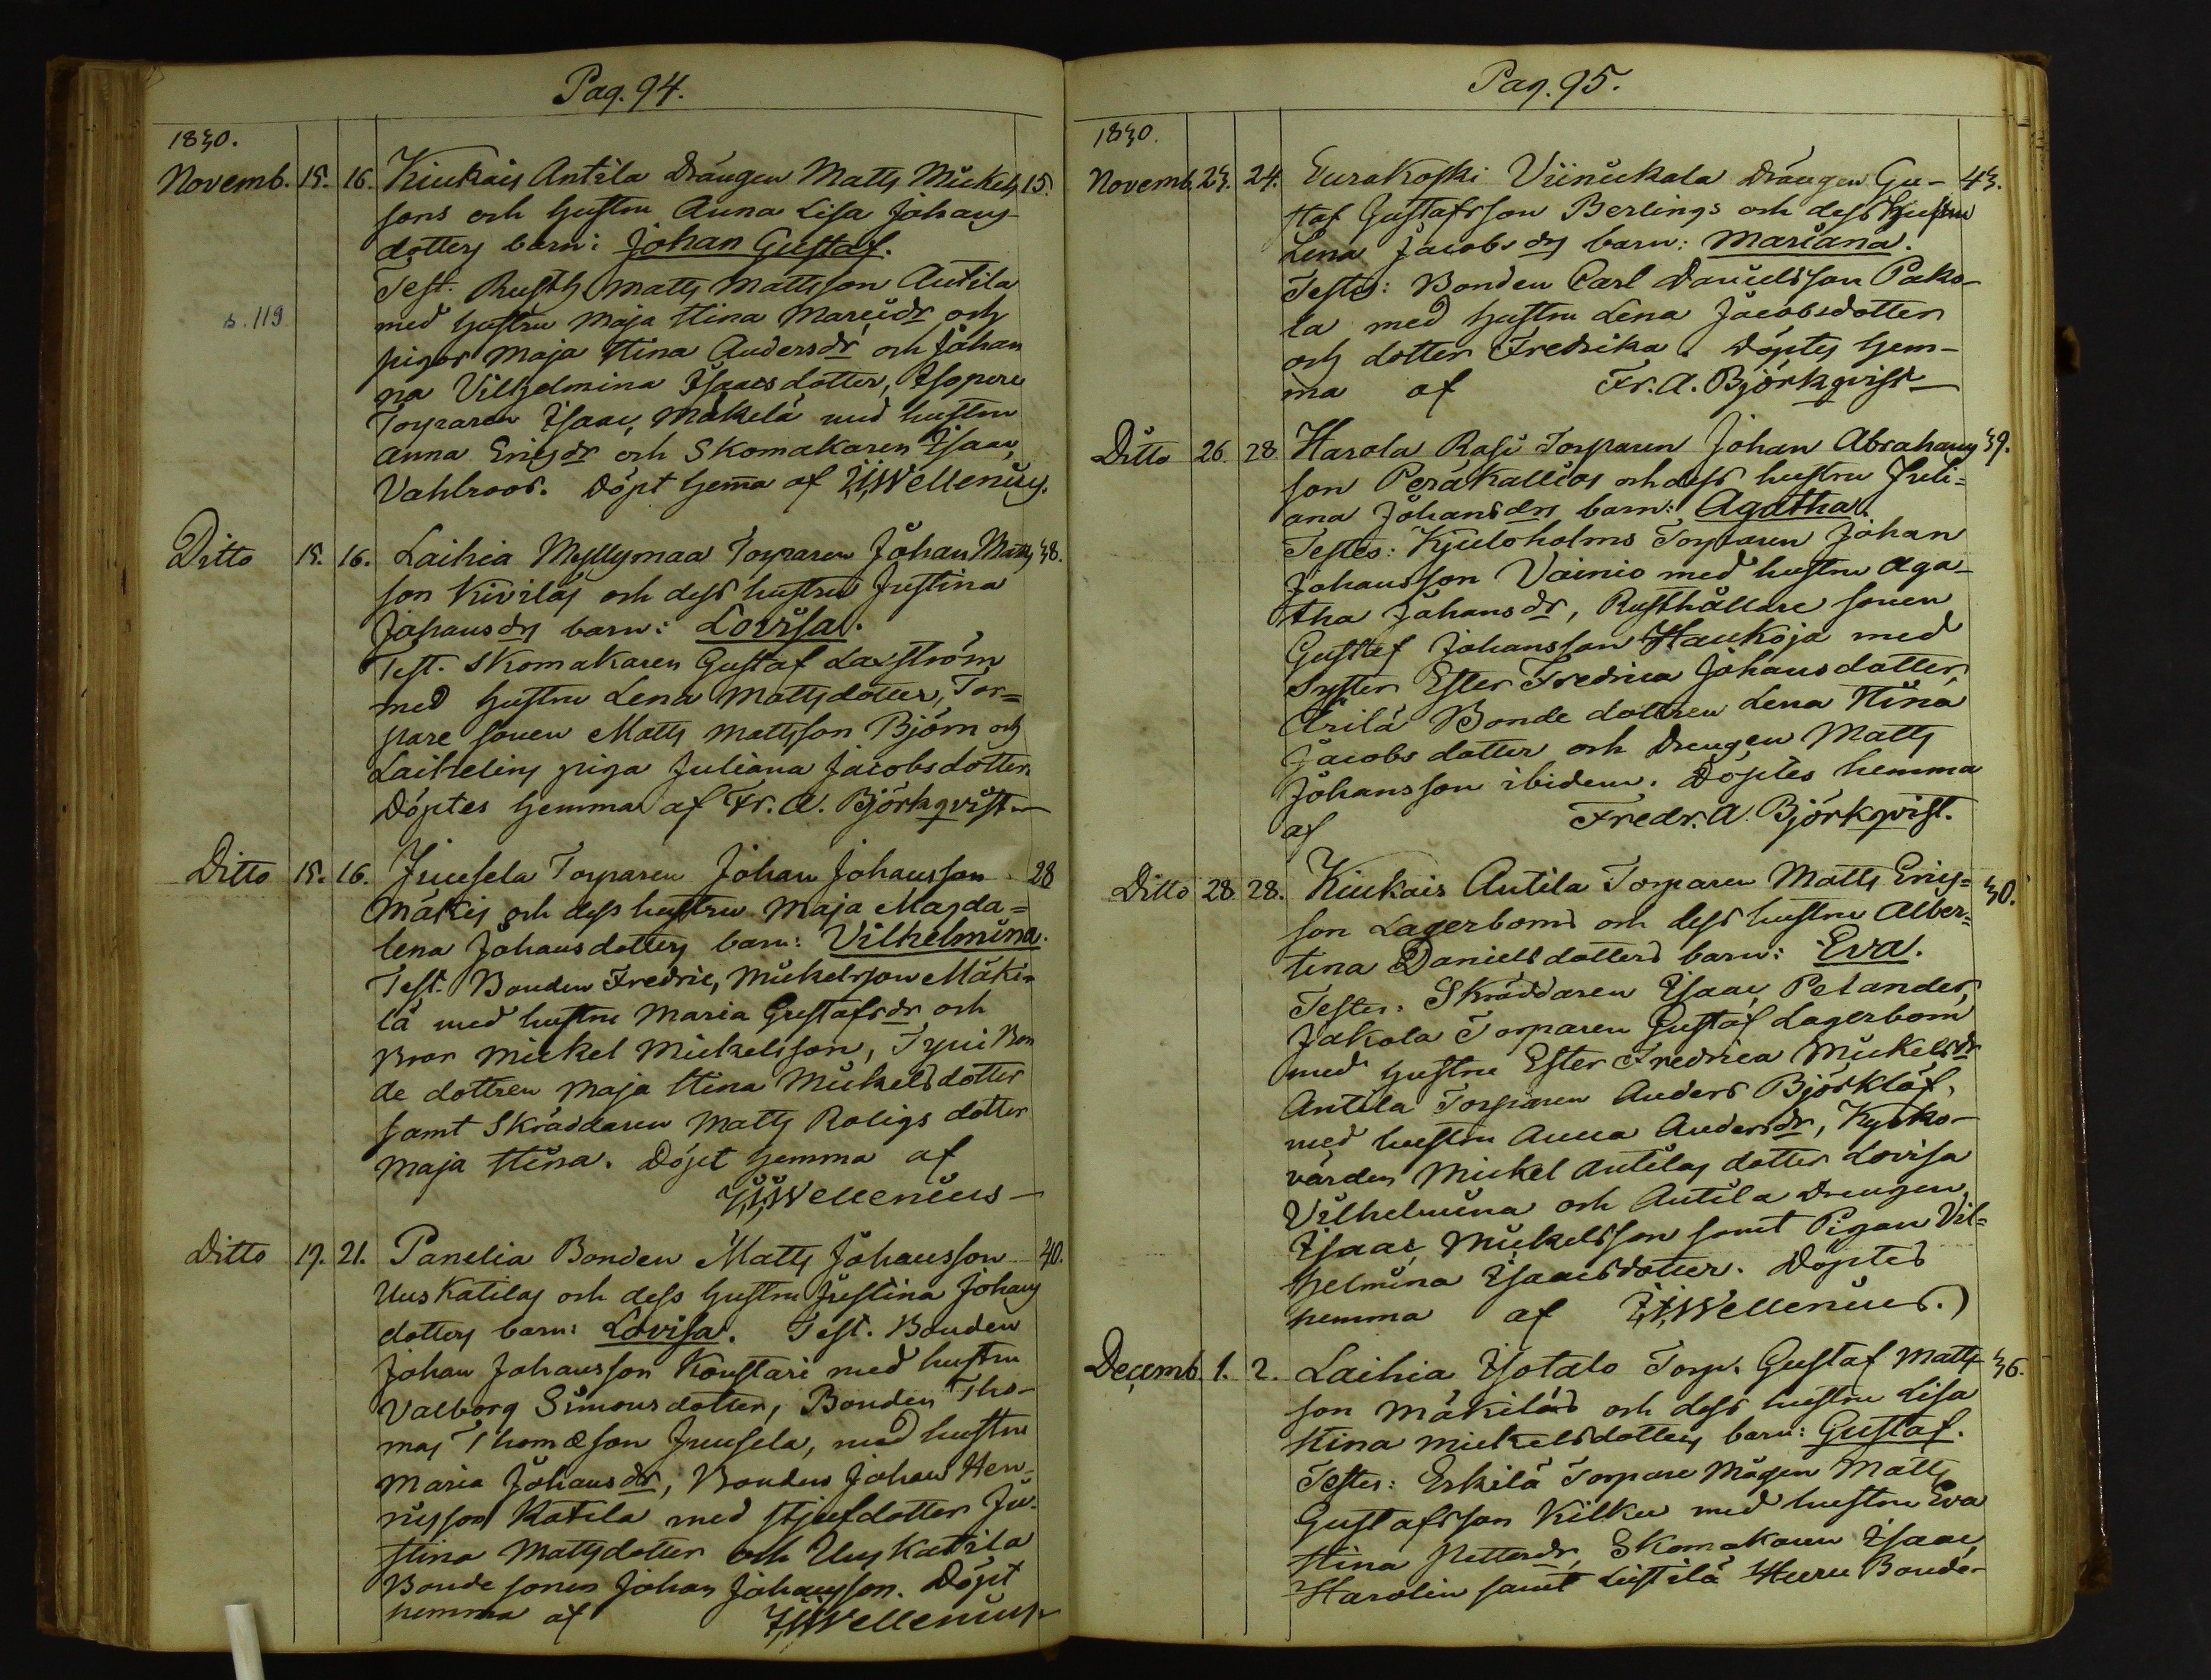 Pag. 94.
1830.
Novemb. 15. 16. Kiukais Antila Drängen Matts Mickels 15.
sons och hustru Anna Lisa Johans
dotters barn: Johan Gustaf.
Test. Rusth. Matts Mattsson Antila
s. 119
med hustru Maja Stina Marcidr och
pigor Maja Stina Andersdr och Johan
na Vilhelmina Isaacsdotter,
Torparen Isaac Mäkelä med hustru
Anna Ericsdr och Skomakaren Isaac
Vahlroos. Döpt hema af Wellenius.
Ditto 15. 16. Laihia Myllymaa Torparen Johan Matts 38.
son Kiviläs och dess hustru Justina
Johansdrs barn: Lovisa.
Test. Skomakaren Gustaf Laxström
med hustru Lena Mattsdotter, Tor=
pare sonen Matts Mattsson Björn och
piga Juliana Jacobsdotter
Döptes hemma af Fr. A. Björkqvist
Ditto 15. 16. Juusela Torparen Johan Johansson 28
Mäkis och dess hustru Maja Magda=
lena Johansdotters barn: Vilhelmina.
Test. Bonden Fredric Mickelsson Mäki-
lä med hustru Maria Gustafsdr och
Bror Mickel Mickelsson, Tyni Bon
de dottren Maja Stina Mickelsdotter
samt Skräddaren Matts Roligs dotter
Maja Stina. Döpt hemma af
Wellenius
Ditto 19. 21. Panelia Bonden Matts Johansson 40.
Uuskatilas och dess hustru Justina Johans
dotters barn: Lovisa. Test. Bonden
Johan Johansson Konstari med hustru
Valborg Simonsdotter, Bonden Tho-
mas Thomæson Juusela, med hustru
Maria Johansdr, Bonden Johan Hen-
ricsson Katila med stjufdotter Ju-
stina Mattsdotter och Uuskatila
Bonde sonen Johan Johansson. Döpt
hemma af Wellenius
Pag. 95.
1830.
Novemb. 23. 24. Eurakoski Viinikala Drängen Gu- 43.
staf Gustafsson Berlings och dess hustru
Lena Jacobsdrs barn: Mariana.
Testes: Bonden Carl Danielsson Pako-
la med hustru Lena Jacobsdotter
och dotter Fredrika. Döptes hem-
ma af Fr. A. Björkqvist
Ditto 26. 28 Harola Rasi Torparen Johan Abrahams 39.
son Peräkallios och dess hustru Juli=
ana Johansdrs barn: Agatha.
Testes: Kjuloholms Torparen Johan
Johansson Vainio med hustru Aga-
tha Johansdr, Rusthållare sonen
Gustaf Johansson Haukoja med
Syster Ester Fredrica Johansdotter,
Ärilä Bonde dottren Lena Stina
Jacobsdotter och Drengen Matts
Johansson ibidem. Döptes hemma
af Fredr. A. Björkqvist.
Ditto 28. 28. Kiukais Antila Torparen Matts Erics= 30.
son Lagerboms och dess hustru Alber=
tina Danielsdotters barn: Eva.
Testes: Skräddaren Isaac Pelander,
Jakola Torparen Gustaf Lagerbom
med hustru Ester Fredrica Mickelsdr
Antila Torparen Anders Björklöf,
med hustru Anna Andersdr, Kyrko-
värden Mickel Antilas dotter Lovisa
Vilhelmina och Antila Drengen
Isaac Mickelsson samt Pigan Vil=
helmina Isaacsdotter. Döptes
hemma af Wellenius.
Decemb. 1. 2. Laihia Isotalo Torp. Gustaf Matts 36.
son Mäkiläs och dess hustru Lisa
Stina Mickelsdotters barn: Gustaf.
Testes: Eskilä Torpare Mågen Matts
Gustafsson Kilku med hustru Eva
Stina Pettersdr, Skomakaren Isaac
Harolin samt Listilä Heru Bonde-